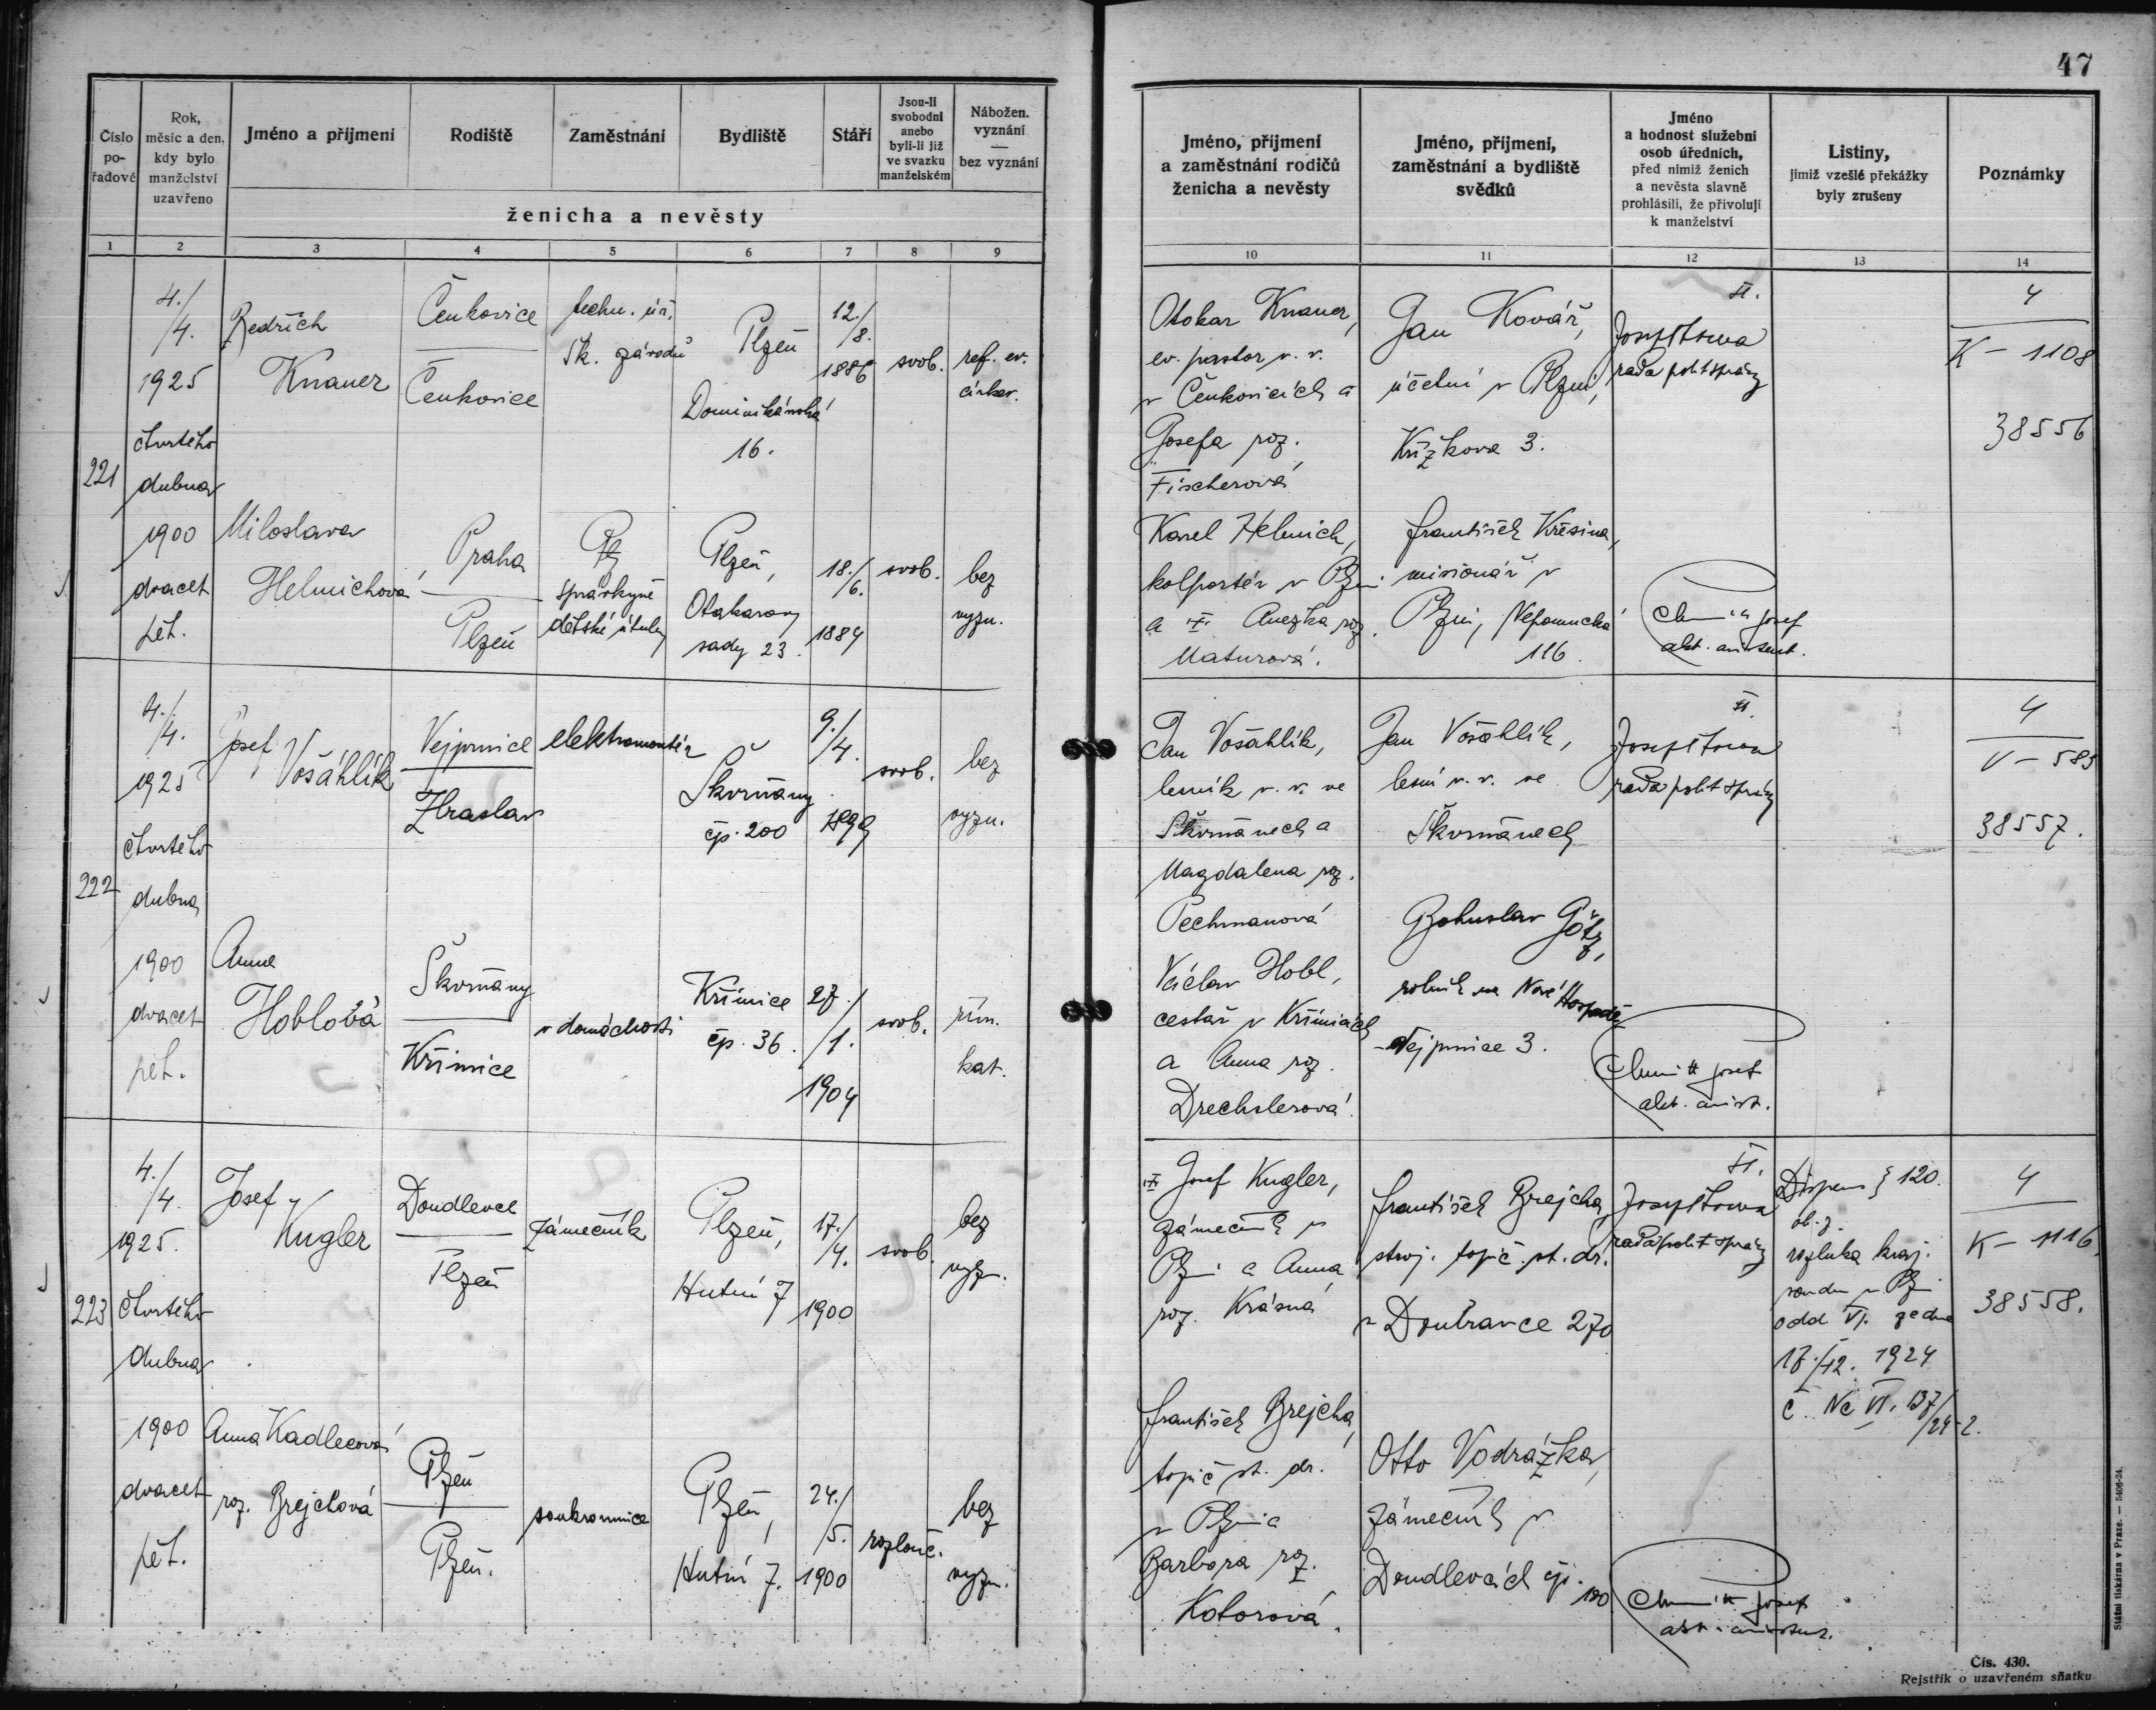 47
Číslo
po-
řadové
Rok,
měsíc a den,
kdy bylo
manželství
uzavřeno
Jméno a příjmení
Rodiště
Zaměstnání
Bydliště
Stáří
Jsou-li
svobodni
anebo
byli-li již
ve svazku
manželském
Nábožen.
vyznání
—
bez vyznání
ženicha a nevěsty
1 2 3 4 5 6 7 8 9
Jméno, příjmení
a zaměstnání rodičů
ženicha a nevěsty
Jméno, příjmení,
zaměstnání a bydliště
svědků
Jméno
a hodnost služební
osob úředních,
před nimiž ženich
a nevěsta slavně
prohlásili, že přivolují
k manželství
Listiny,
jimiž vzešlé překážky
byly zrušeny
Poznámky
10 11 12 13 14
221
4./
/4.
1925
čtvrtého
dubna
1900
dvacet
pět.
Bedřich
Knauer
Čenkovice
Čenkovice
techn. úř.
Šk. závodů
Plzeň
Dominikánská
16.
12./
/8.
1886
svob.
ref. ev.
církev.
Miloslava
Helmichová
Praha
Plzeň
správkyně
dětské útulny
Plzeň,
Otakarovy
sady 23.
18./
/6.
1884
svob.
bez
vyzn.
Otokar Knauer,
ev. pastor v. v.
v Čenkovicích a
Josefa roz.
Fischerová
Karel Helmich,
kolportér v Plzni
a Anežka roz.
Maturová.
Jan Kovář,
účetní v Plzni,
Křížkova 3.
František Křesina,
misionář v
Plzni, Nepomucká
116.
rada polit správy
Josef
akt. assistent.
4
K – 1108
38556
222
4./
/4.
1925
čtvrtého
dubna
1900
dvacet
pět.
Josef
Vošáhlík
Vejprnice
Zbraslav
elektromontér
Škvrňany
čp. 200
9./
/4.
1899
svob.
bez
vyzn.
Anna
Hoblová
Škvrňany
Křimice
v domácnosti
Křimice
čp. 36.
27./
/1.
1904
svob.
řím.
kat.
Jan Vošáhlík,
lesník v. v. ve
Škvrňanech a
Magdalena roz.
Pechmanová
Václav Hobl,
cestář v Křimicích
a Anna roz.
Drechslerová.
Jan Vošáhlík,
lesní v. v. ve
Škvrňanech
Bohuslav Götz,
rolník na Nové Hospodě
Vejprnice 3.
rada polit správy
Josef
akt. assist.
4
V – 583
38557.
223
4./
/4.
1925.
čtvrtého
dubna
1900
dvacet
pět.
Josef
Kugler
Doudlevce
Plzeň
zámečník
Plzeň,
Hutní 7
17./
/4.
1900
svob.
bez
vyzn.
Anna Kadlecová
roz. Brejchová
Plzeň
Plzeň.
soukromnice
Plzeň,
Hutní 7.
24./
/5.
1900
rozlouč.
bez
vyzn.
Josef Kugler,
zámečník v
Plzni a Anna
roz. Krásná
František Brejcha,
topič st. dr.
v Plzni a
Barbora roz.
Kotorová.
František Brejcha
stroj. topič st. dr.
v Doubravce 270
Otto Vodrážka,
zámečník v
Doudlevcích čp. 180
rada polit správy
Josef
akt. assistent.
Dispens § 120.
ob. z.
rozluka kraj.
soudu v Plzni
odd VI. ze dne
17./12. 1924
č. Nc VI. 137/24-2.
4
K – 1116
38558.
Státní tiskárna v Praze. — 5406-24.
Čís. 430.
Rejstřík o uzavřeném sňatku